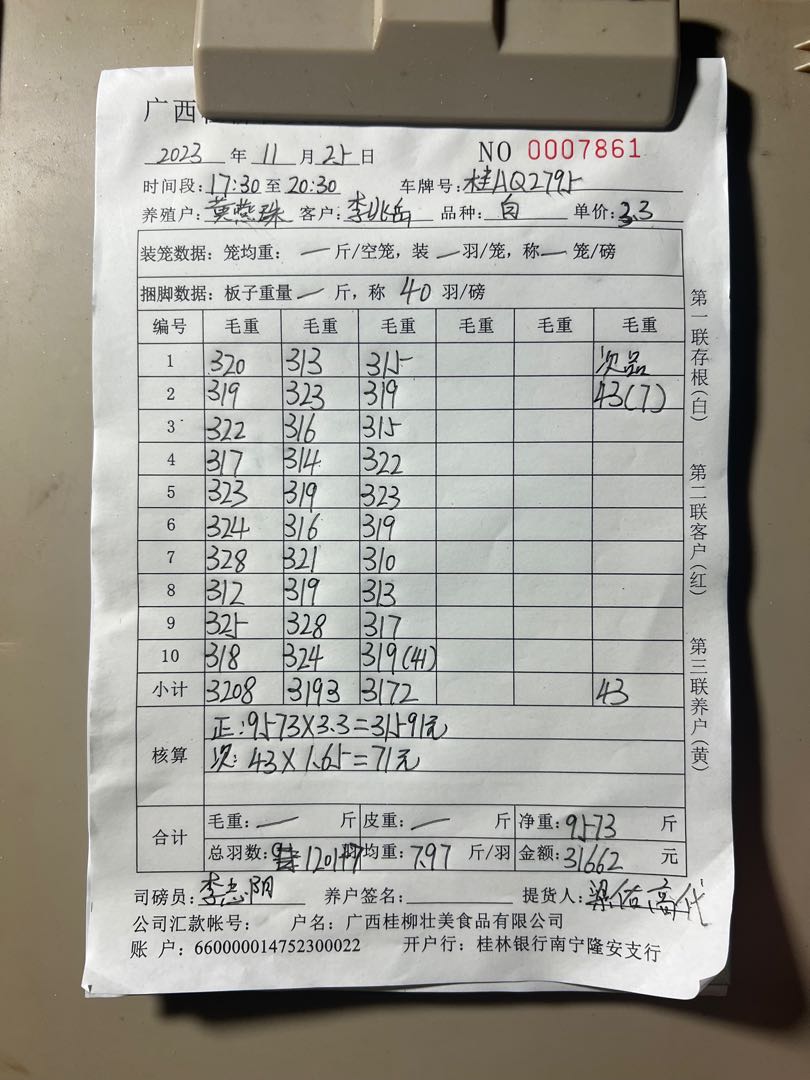 广西
2023 年 11 月 25 日 NO 0007861
时间段:17:30 至 20:30 车牌号:桂AQ2795
养殖户:黄燕珠 客户:李兆岳 品种:白 单价:3.3
装笼数据:笼均重:一斤/空笼,装一羽/笼,称一笼/磅
捆脚数据:板子重量一斤,称 40 羽/磅
编号 毛重 毛重 毛重 毛重 毛重 毛重
1 320 313 315 次品
2 319 323 319 43(7)
3 322 316 315
4 317 314 322
5 323 319 323
6 324 316 319
7 328 321 310
8 312 319 313
9 325 328 317
10 318 324 319(41)
小计 3208 3193 3172 43
核算 正:9573×3.3=31591元
次:43×1.65=71元
合计 毛重:一 斤 皮重:一 斤 净重:9573 斤
总羽数: 1201+7 羽均重:7.97 斤/羽 金额:31662 元
司磅员:李忠阴 养户签名: 提货人:
公司汇款帐号: 户名:广西桂柳壮美食品有限公司
账 户:660000014752300022 开户行:桂林银行南宁隆安支行
第一联存根(白)
第二联客户(红)
第三联养户(黄)